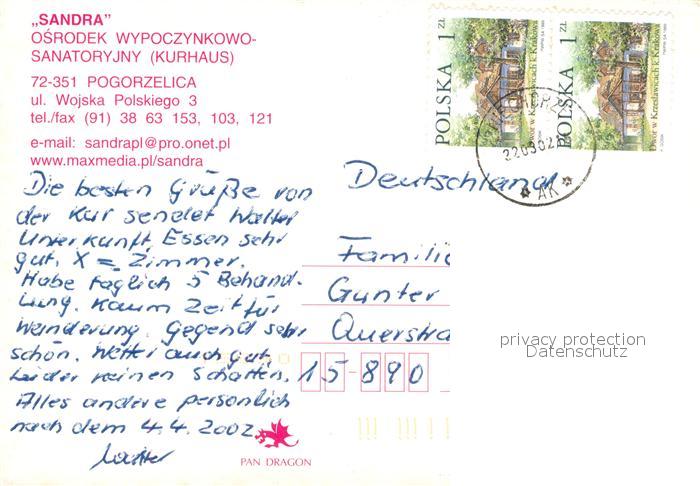 „SANDRA”
OŚRODEK WYPOCZYNKOWO-
SANATORYJNY (KURHAUS)
72-351 POGORZELICA
ul. Wojska Polskiego 3
tel./fax (91) 38 63 153, 103, 121
e-mail: sandrapl@pro.onet.pl
www.maxmedia.pl/sandra
Die besten Grüße von
der Kur sendet Walter
Unterkunft, Essen sehr
gut. X = Zimmer.
Habe täglich 5 Behand-
lung. Kaum Zeit für
Wanderung. Gegend sehr
schön. Wetter auch gut.
Leider keinen Schatten.
Alles andere persönlich
nach dem 4.4.2002
Walter
POLSKA 1 ZŁ
Dwór w Krzesławicach k. Krakowa
POLSKA 1 ZŁ
Dwór w Krzesławicach k. Krakowa
220302
AK
Deutschland
Famili
Gunter
Querstra
15-890
privacy protection
Datenschutz
PAN DRAGON